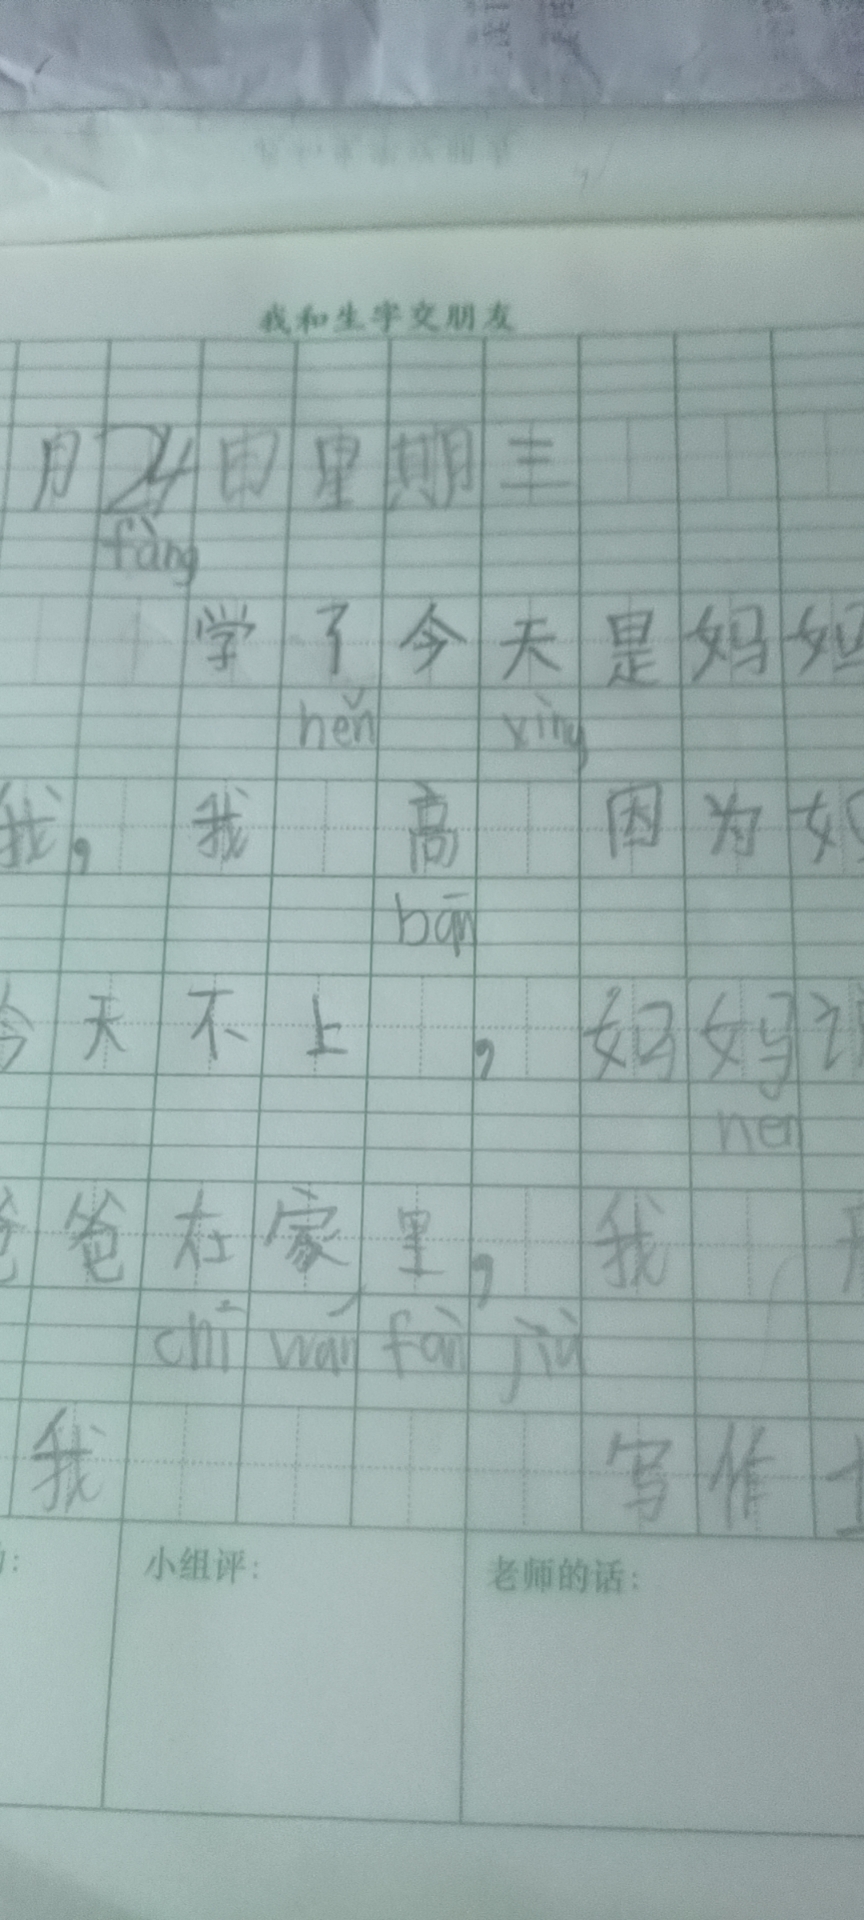 我和生字交朋友
月24日星期三
fàng
学了今天是妈妈
hěn xìng
我，我 高 因为妈
bān
今天不上 ，妈妈
nen
爸爸在家里，我
chī wán fàn jiù
我 写作
小组评：
老师的话：